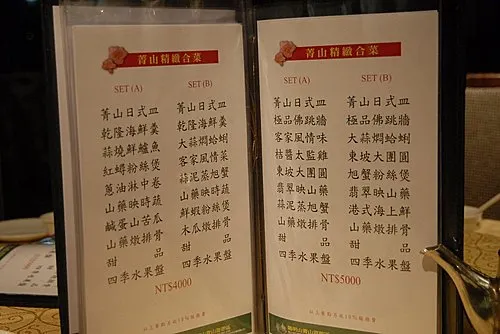 菁山精緻合菜
SET (A)
菁山日式皿
乾隆海鮮羹
蒜燒鮮鱸魚
紅蟳粉絲煲
蔥油淋中卷
山藥映時蔬
鹹蛋山苦瓜
山藥燉排骨
甜品
四季水果盤
SET (B)
菁山日式皿
乾隆海鮮羹
大蒜燜蛤蜊
客家風情菜
蒜泥蒸旭蟹
山藥映時蔬
鮮蝦粉絲煲
木瓜燉排骨
甜品
四季水果盤
NT$4000
以上餐點另收10%服務費
菁山精緻合菜
SET (A)
菁山日式皿
極品佛跳牆
客家風情味
桔醬太監雞
東坡大團圓
翡翠映山藥
蒜泥蒸旭蟹
山藥燉排骨
甜品
四季水果盤
SET (B)
菁山日式皿
極品佛跳牆
大蒜燜蛤蜊
東坡大團圓
旭蟹粉絲煲
翡翠映山藥
港式海上鮮
山藥燉排骨
甜品
四季水果盤
NT$5000
以上餐點另收10%服務費